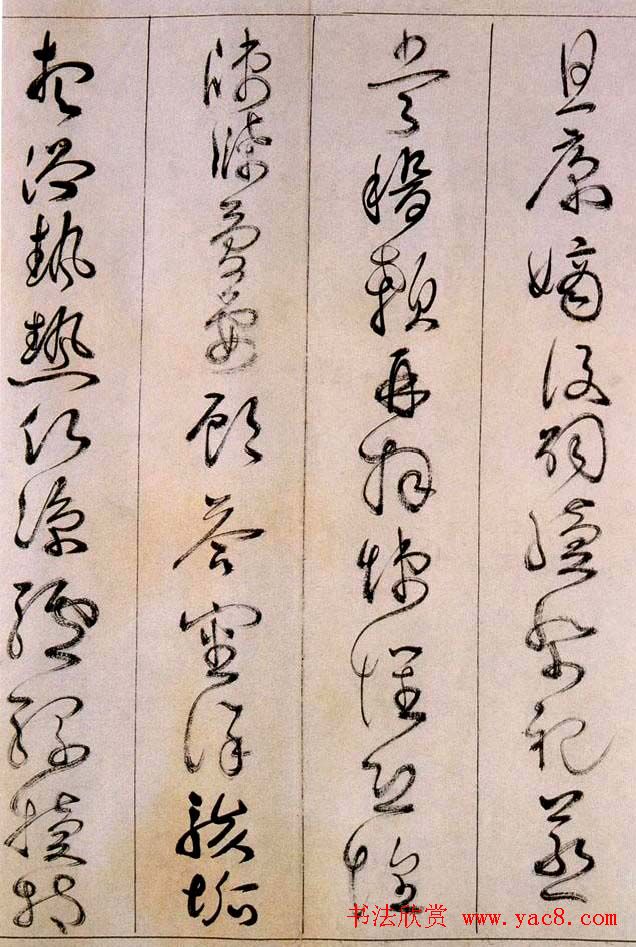 且康嫡後嗣續祭祀蒸
嘗稽顙再拜悚懼恐惶
牋牒簡要顧答審詳骸垢
想浴執熱願涼驢騾犢特
书法欣赏 www.yac8.com